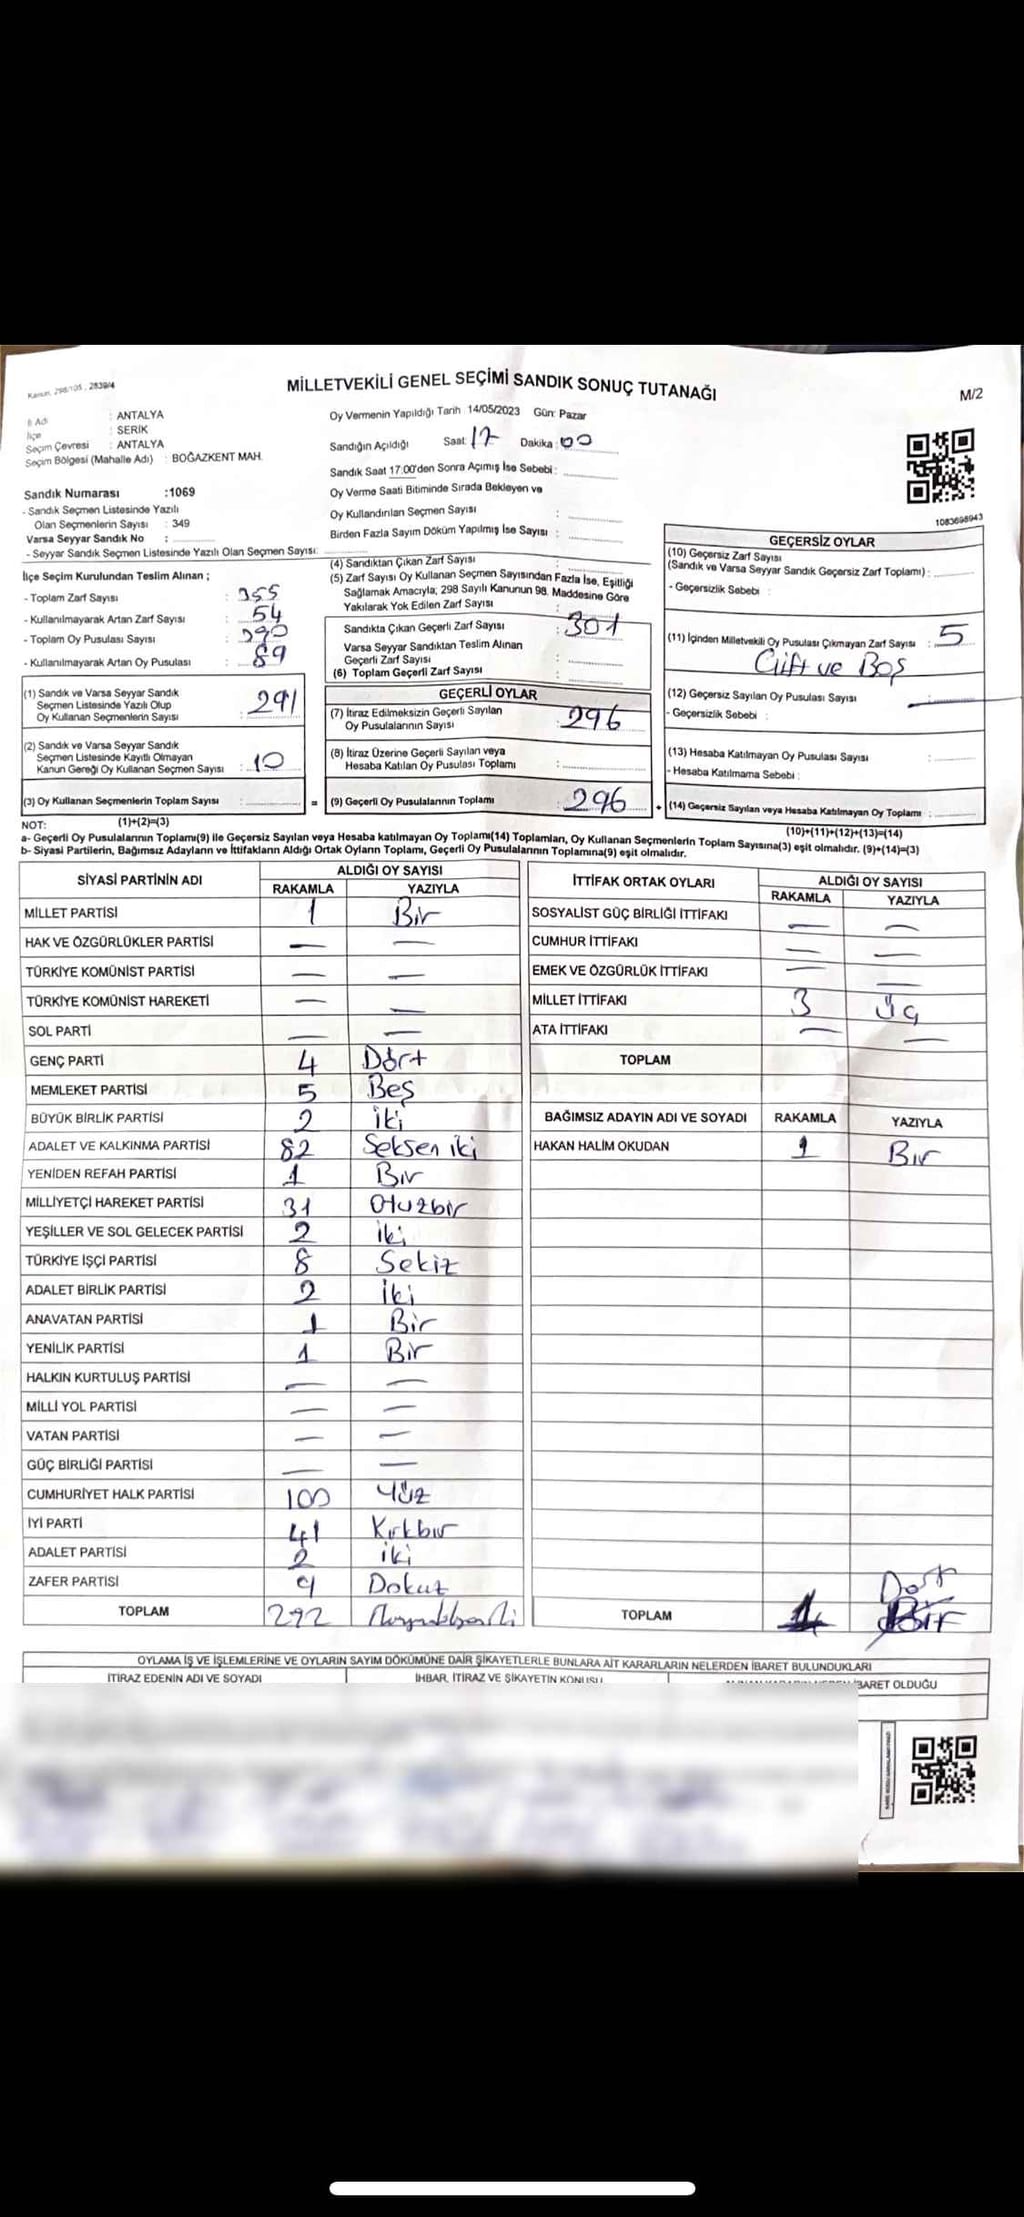 Kanun. 298/105 ; 2839/4
MİLLETVEKİLİ GENEL SEÇİMİ SANDIK SONUÇ TUTANAĞI
M/2
İl Adı : ANTALYA
İlçe : SERİK
Seçim Çevresi : ANTALYA
Seçim Bölgesi (Mahalle Adı) : BOĞAZKENT MAH.
Oy Vermenin Yapıldığı Tarih : 14/05/2023 Gün: Pazar
Sandığın Açıldığı Saat: 17 Dakika : 00
Sandık Saat 17:00'den Sonra Açımış İse Sebebi :
Oy Verme Saati Bitiminde Sırada Bekleyen ve
Oy Kullandırılan Seçmen Sayısı :
Birden Fazla Sayım Döküm Yapılmış İse Sayısı :
1083698943
Sandık Numarası :1069
- Sandık Seçmen Listesinde Yazılı
Olan Seçmenlerin Sayısı : 349
Varsa Seyyar Sandık No :
- Seyyar Sandık Seçmen Listesinde Yazılı Olan Seçmen Sayısı:
İlçe Seçim Kurulundan Teslim Alınan ;
- Toplam Zarf Sayısı : 355
- Kullanılmayarak Artan Zarf Sayısı : 54
- Toplam Oy Pusulası Sayısı : 390
- Kullanılmayarak Artan Oy Pusulası : 89
(1) Sandık ve Varsa Seyyar Sandık
Seçmen Listesinde Yazılı Olup
Oy Kullanan Seçmenlerin Sayısı : 291
(2) Sandık ve Varsa Seyyar Sandık
Seçmen Listesinde Kayıtlı Olmayan
Kanun Gereği Oy Kullanan Seçmen Sayısı : 10
(3) Oy Kullanan Seçmenlerin Toplam Sayısı :
(4) Sandıktan Çıkan Zarf Sayısı :
(5) Zarf Sayısı Oy Kullanan Seçmen Sayısından Fazla İse, Eşitliği
Sağlamak Amacıyla; 298 Sayılı Kanunun 98. Maddesine Göre
Yakılarak Yok Edilen Zarf Sayısı :
Sandıkta Çıkan Geçerli Zarf Sayısı : 301
Varsa Seyyar Sandıktan Teslim Alınan
Geçerli Zarf Sayısı :
(6) Toplam Geçerli Zarf Sayısı :
GEÇERLİ OYLAR
(7) İtiraz Edilmeksizin Geçerli Sayılan
Oy Pusulalarının Sayısı : 296
(8) İtiraz Üzerine Geçerli Sayılan veya
Hesaba Katılan Oy Pusulası Toplamı :
= (9) Geçerli Oy Pusulalarının Toplamı : 296
GEÇERSİZ OYLAR
(10) Geçersiz Zarf Sayısı
(Sandık ve Varsa Seyyar Sandık Geçersiz Zarf Toplamı) :
- Geçersizlik Sebebi :
(11) İçinden Milletvekili Oy Pusulası Çıkmayan Zarf Sayısı : 5
Çift ve Boş
(12) Geçersiz Sayılan Oy Pusulası Sayısı
- Geçersizlik Sebebi :
(13) Hesaba Katılmayan Oy Pusulası Sayısı :
- Hesaba Katılmama Sebebi :
+ (14) Geçersiz Sayılan veya Hesaba Katılmayan Oy Toplamı :
NOT: (1)+(2)=(3)
(10)+(11)+(12)+(13)=(14)
a- Geçerli Oy Pusulalarının Toplamı(9) ile Geçersiz Sayılan veya Hesaba katılmayan Oy Toplamı(14) Toplamları, Oy Kullanan Seçmenlerin Toplam Sayısına(3) eşit olmalıdır. (9)+(14)=(3)
b- Siyasi Partilerin, Bağımsız Adayların ve İttifakların Aldığı Ortak Oyların Toplamı, Geçerli Oy Pusulalarının Toplamına(9) eşit olmalıdır.
SİYASİ PARTİNİN ADI ALDIĞI OY SAYISI
RAKAMLA YAZIYLA
MİLLET PARTİSİ 1 Bir
HAK VE ÖZGÜRLÜKLER PARTİSİ — —
TÜRKİYE KOMÜNİST PARTİSİ — —
TÜRKİYE KOMÜNİST HAREKETİ — —
SOL PARTİ — —
GENÇ PARTİ 4 Dört
MEMLEKET PARTİSİ 5 Beş
BÜYÜK BİRLİK PARTİSİ 2 İki
ADALET VE KALKINMA PARTİSİ 82 Seksen iki
YENİDEN REFAH PARTİSİ 1 Bir
MİLLİYETÇİ HAREKET PARTİSİ 31 Otuzbir
YEŞİLLER VE SOL GELECEK PARTİSİ 2 iki
TÜRKİYE İŞÇİ PARTİSİ 8 Sekiz
ADALET BİRLİK PARTİSİ 2 iki
ANAVATAN PARTİSİ 1 Bir
YENİLİK PARTİSİ 1 Bir
HALKIN KURTULUŞ PARTİSİ — —
MİLLİ YOL PARTİSİ — —
VATAN PARTİSİ — —
GÜÇ BİRLİĞİ PARTİSİ — —
CUMHURİYET HALK PARTİSİ 100 Yüz
İYİ PARTİ 41 Kırkbir
ADALET PARTİSİ 2 iki
ZAFER PARTİSİ 9 Dokuz
TOPLAM 292
İTTİFAK ORTAK OYLARI ALDIĞI OY SAYISI
RAKAMLA YAZIYLA
SOSYALİST GÜÇ BİRLİĞİ İTTİFAKI — —
CUMHUR İTTİFAKI — —
EMEK VE ÖZGÜRLÜK İTTİFAKI — —
MİLLET İTTİFAKI 3 Üç
ATA İTTİFAKI — —
TOPLAM
BAĞIMSIZ ADAYIN ADI VE SOYADI RAKAMLA YAZIYLA
HAKAN HALİM OKUDAN 1 Bir
TOPLAM 4 Dört Bir
OYLAMA İŞ VE İŞLEMLERİNE VE OYLARIN SAYIM DÖKÜMÜNE DAİR ŞİKAYETLERLE BUNLARA AİT KARARLARIN NELERDEN İBARET BULUNDUKLARI
İTİRAZ EDENİN ADI VE SOYADI İHBAR, İTİRAZ VE ŞİKAYETİN KONUSU
İBARET OLDUĞU